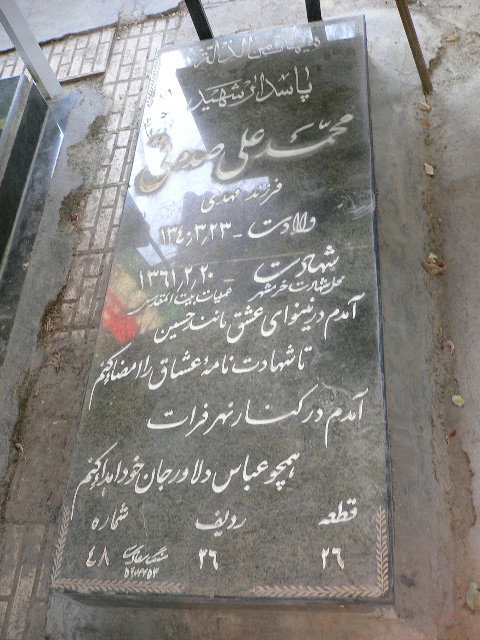 پاسدار شهید
محمد علی صدوقی
فرزند مهدی
ولادت - ۱۳۴۰٫۳٫۲۳
شهادت - ۱۳۶۱٫۲٫۲۰
محل شهادت خرمشهر عملیات بیت المقدس
آمدم در نینوای عشق مانند حسین
تا شهادت نامهٔ عشاق را امضا کنم
آمدم در کنار نهر فرات
همچو عباس دلاور جان خود اهدا کنم
قطعه ردیف شماره
۲۶ ۲۶ ۴۸